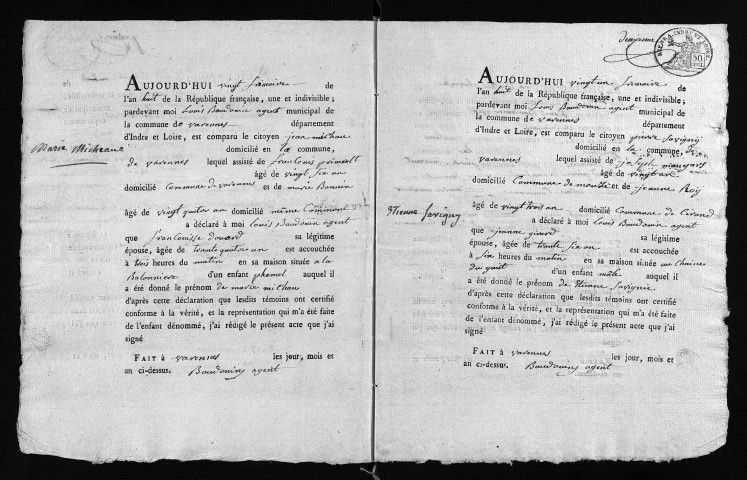 Marie Micheau
AUJOURD'HUI vingt frimaire de
l'an huit de la République française, une et indivisible;
pardevant moi Louis Baudouin agent municipal de
la commune de varennes département
d'Indre et Loire, est comparu le citoyen jean michau
domicilié en la commune,
de varennes lequel assisté de francois
âgé de vingt six an
domicilié Commune de varennes et de marie
âgé de vingt quatre an domicilié même Commune
a déclaré à moi Louis Baudouin agent
que francouisse douard sa légitime
épouse, âgée de trante quatre an est accouchée
à trois heures du matin en sa maison située a la
Balonniere d'un enfant phemel auquel il
a été donné le prénom de marie michau
d'après cette déclaration que lesdits témoins ont certifié
conforme à la vérité, et la représentation qui m'a été faite
de l'enfant dénommé, j'ai rédigé le présent acte que j'ai
signé
FAIT à varennes les jour, mois et
an ci-dessus. Baudouin agent
deuxieme
50
Etienne Savigny
AUJOURD'HUI vingt un frimaire de
l'an huit de la République française, une et indivisible;
pardevant moi Louis Baudouin agent municipal de
la commune de varennes département
d'Indre et Loire, est comparu le citoyen pierre Savignij
domicilié en la commune, de
varennes lequel assisté de joseph
âgé de vingt
domicilié Commune de et de jeanne Roy
âgé de vingt trois an domicilié Commune de Cirand
a déclaré à moi Louis Baudouin agent
que jeanne girard sa légitime
épouse, âgée de trante six an est accouchée
à six heures du matin en sa maison située au chaine
du d'un enfant mâle auquel il
a été donné le prénom de Etienne Savignie
d'après cette déclaration que lesdits témoins ont certifié
conforme à la vérité, et la représentation qui m'a été faite
de l'enfant dénommé, j'ai rédigé le présent acte que j'ai
signé
FAIT à varennes les jour, mois et
an ci-dessus. Baudouin agent